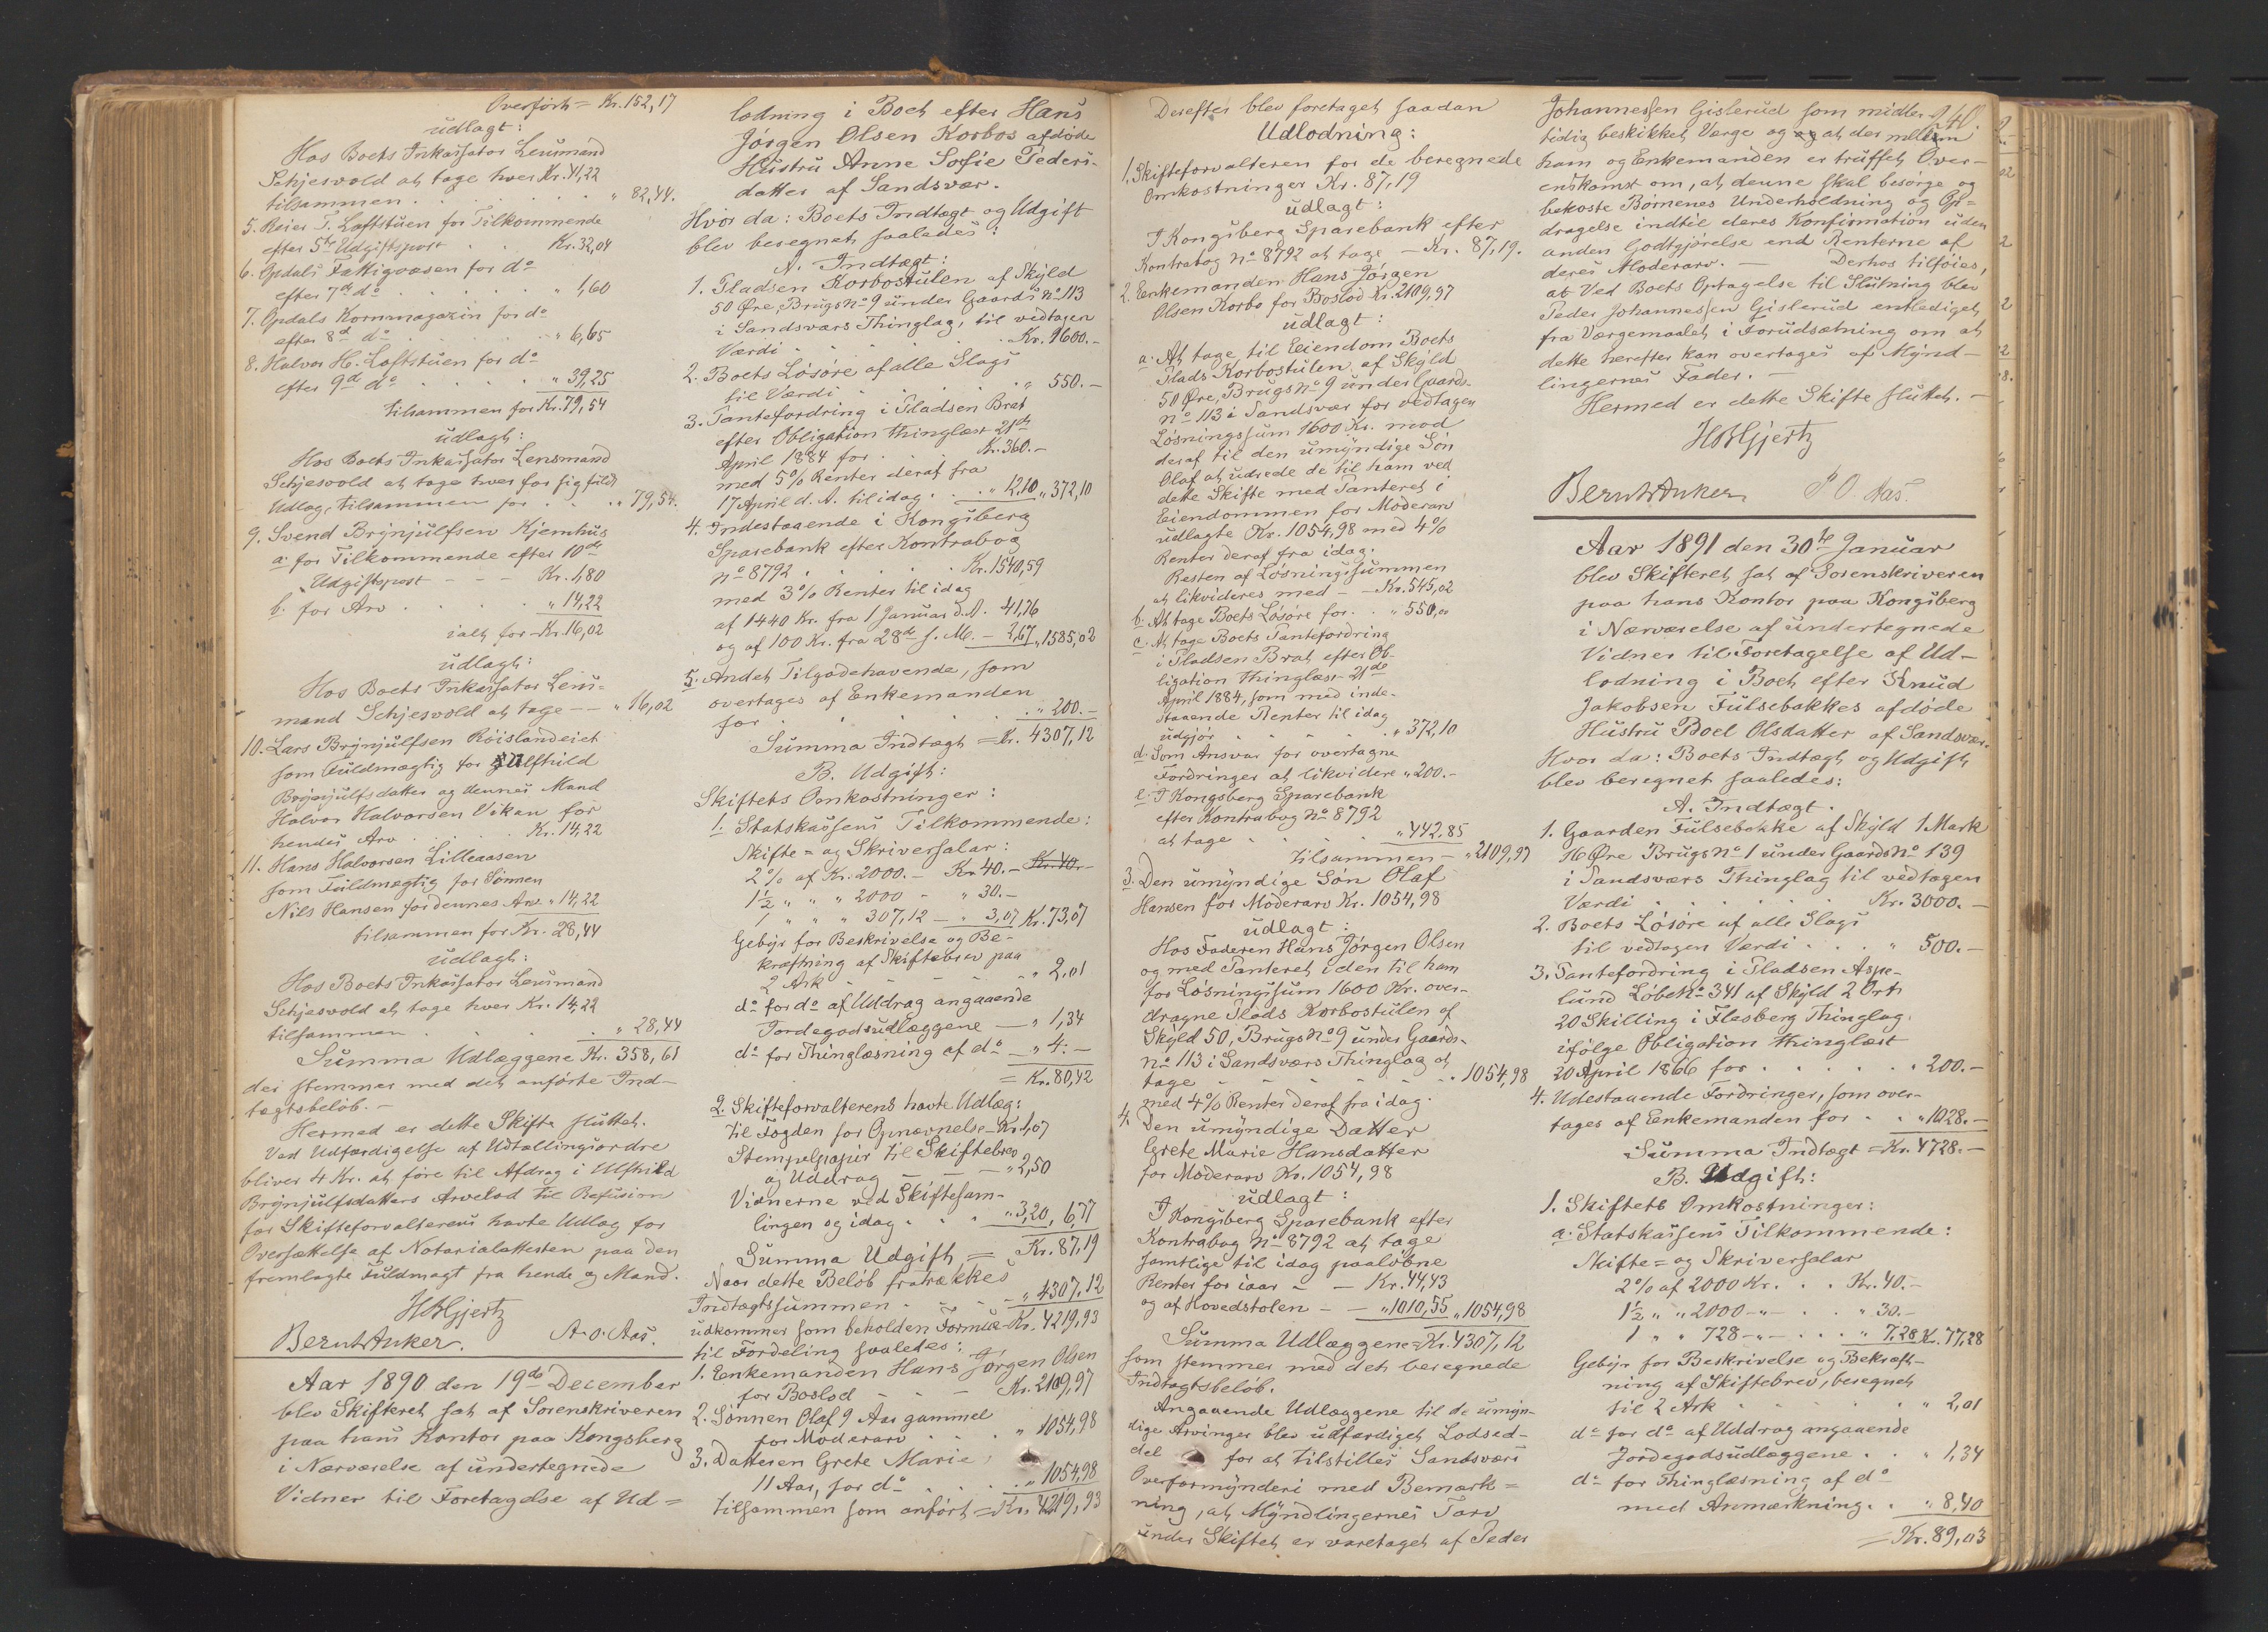 Overført = Kr. 152,17
udlagt:
Hos Boets Inkassator Lensmand
Schjesvold at tage hver Kr. 41,22
tilsammen . . . . . " 82,44.
5. Reier T. Loftstuen for Tilkommende
efter 5te Udgiftspost . . Kr. 32,04
6. Opdals Fattigvæsen for do
efter 7de do . . . . . " 1,60
7. Opdals Kornmagazin for do
efter 8de do . . . . . " 6,65
8. Halvor H. Loftstuen for do
efter 9de do . . . . . " 39,25
tilsammen for Kr. 79,54
udlagt:
Hos Boets Inkassator Lensmand
Schjesvold at tage hver for sig sidst
Udlag, tilsammen for . . . " 79,54.
9. Svend Brynjulfsen Kjemhus
a. for Tilkommende efter 10de
Udgiftspost - - - Kr. 1,80
b. for Arv . . . . . " 14,22
ialt for - Kr. 16,02
udlagt:
Hos Boets Inkassator Lens-
mand Schjesvold at tage - - " 16,02
10. Lars Brynjulfsen Røislandeiet
som Fuldmægtig for Ulfhild
Brynjulfsdatter og dennes Mand
Halvor Halvorsen Vikan for
hendes Arv . . . . . Kr. 14,22
11. Hans Halvorsen Lilleaasen
som Fuldmægtig for Sønnen
Nils Hansen for dennes Arv " 14,22
tilsammen for Kr. 28,44
udlagt:
Hos Boets Inkassator Lensmand
Schjesvold at tage hver Kr. 14,22
tilsammen . . . . . " 28,44
Summa Udlæggene Kr. 358,61
der stemmer med det anførte Ind-
tægtsbeløb. -
Hermed er dette Skifte sluttet.
Ved Udfærdigelse af Udtællingsordre
bliver 4 Kr. at føre til Afdrag i Ulfhild
Brynjulfsdatters Arvelod til Refusion
for Skifteforvalterens havte Udlæg for
Oversættelse af Notarialattesten paa den
fremlagte Fuldmagt fra hende og Mand.
HBGjertz
Bernt Anker. A. O. Aas.
Aar 1890 den 19de December
blev Skifteret sat af Sorenskriveren
paa hans Kontor paa Kongsberg
i Nærværelse af undertegnede
Vidner til Foretagelse af Ud=
lodning i Boet efter Hans
Jørgen Olsen Korbos afdøde
Hustru Anne Sofie Peders-
datter af Sandsvær.
Hvor da: Boets Indtægt og Udgift
blev beregnet saaledes:
A. Indtægt:
1. Pladsen Korbostulen af Skyld
50 Øre, Brugs No 9 under Gaards No 113
i Sandsværs Thinglag, til vedtagen
Værdi . . . . . Kr. 1600.-
2. Boets Løsøre af alle Slags
til Værdi . . . . . " 550.-
3. Pantefordring i Pladsen Brat
efter Obligation thinglæst 21de
April 1884 for . . . Kr. 360.-
med 5% Renter deraf fra
17 April d. A. til idag . . " 12,10 " 372,10
4. Indestaaende i Kongsberg
Sparebank efter Kontrabog
No 8792 . . . . . Kr. 1540,59
med 3% Renter til idag
af 1440 Kr. fra 1 Januar d. A. 41,76
og af 100 Kr. fra 28de f. M. - 2,67 " 1585,02
5. Andet Tilgodehavende, som
overtages af Enkemanden
for . . . . . " 200.-
Summa Indtægt = Kr. 4307,12
B. Udgift:
Skiftets Omkostninger:
1. Statskassens Tilkommende:
Skifte= og Skriversalær:
2% af Kr. 2000.- Kr. 40.- Kr. 40.-
1½ " " " 2000 - " 30.-
1 " " " 307,12 - " 3,07 Kr. 73,07
Gebyr for Beskrivelse og Be-
kræftning af Skiftebrev paa
2 Ark . . . . . " 2,01
do for do af Uddrag angaaende
Jordegodsudlæggene - " 1,34
do for Thinglæsning af do - " 4.-
= Kr. 80,42
2. Skifteforvalterens havte Udlæg:
til Fogden for Opnævnelse - Kr. 1,07
Stempelpapir til Skiftebrev
og Uddrag - - - " 2,50
Vidnerne ved Skiftesam-
lingen og idag . . . " 3,20, 6,77
Summa Udgift = Kr. 87,19
Naar dette Beløb fratrækkes
Indtægtssummen . . . - " 4307,12
udkommer som beholden Formue Kr. 4219,93
til Fordeling saaledes:
1. Enkemanden Hans Jørgen Olsen
for Boslod - - - Kr. 2109,97
2. Sønnen Olaf 9 Aar gammel
for Mødrearv . . . " 1054,98
3. Datteren Grete Marie,
11 Aar, for do . . . " 1054,98
tilsammen som anført = Kr. 4219,93
Derefter blev foretaget saadan
Udlodning:
1. Skifteforvalteren for de beregnede
Omkostninger Kr. 87,19
udlagt:
I Kongsberg Sparebank efter
Kontrabog No 8792 at tage - Kr. 87,19.
2. Enkemanden Hans Jørgen
Olsen Korbo for Boslod Kr. 2109,97
udlagt:
a. At tage til Eiendom Boets
Plads Korbostulen af Skyld
50 Øre, Brugs No 9 under Gaards-
No 113 i Sandsvær for vedtagen
Løsningssum 1600 Kr. mod
deraf til den umyndige Søn
Olaf at udrede de til ham ved
dette Skifte med Panteret i
Eiendommen for Moderarv
udlagte Kr. 1054,98 med 4%
Renter deraf fra idag.
Resten af Løsningssummen
at likvideres med - - Kr. 545,02
b. At tage Boets Løsøre for . . " 550,00
c. At tage Boets Pantefordring
i Pladsen Brat efter Ob-
ligation thinglæst 21de
April 1884, som med inde-
staaende Renter til idag
udgjør . . . . . " 372,10
d. Som Ansvar for overtagne
Fordringer at likvidere " 200.-
e. I Kongsberg Sparebank
efter Kontrabog No 8792
at tage . . . . " 442,85
tilsammen - " 2109,97
3. Den umyndige Søn Olaf
Hansen for Moderarv Kr. 1054,98
udlagt:
Hos Faderen Hans Jørgen Olsen
og med Panteret i den til ham
for Løsningssum 1600 Kr. over-
dragne Plads Korbostulen af
Skyld 50, Brugs No 9 under Gaards-
No 113 i Sandsværs Thinglag at
tage - - - - - " 1054,98
med 4% Renter deraf fra idag.
4. Den umyndige Datter
Grete Marie Hansdatter
for Moderarv Kr. 1054,98
udlagt:
I Kongsberg Sparebank efter
Kontrabog No 8792 at tage
samtlige til idag paaløbne
Renter for iaar - - Kr. 44,43
og af Hovedstolen - - " 1010,55 " 1054,98
Summa Udlæggene = Kr. 4307,12
som stemmer med det beregnede
Indtægtsbeløb.
Angaaende Udlæggene til de umyn-
dige Arvinger blev udfærdiget Lodsed-
del for at tilstilles Sandsværs
Overformynderi med Bemærk=
ning, at Myndlingernes Tarv
under Skiftet er varetaget af Peder
240.
Johannessen Gislerud som midler-
tidig beskikket Værge og at der mellem
ham og Enkemanden er truffet Over-
enskomst om, at denne skal besørge og
bekoste Børnenes Underholdning og Op=
dragelse indtil deres Konfirmation uden
anden Godtgjørelse end Renterne af
deres Moderarv. - Derhos tilføies,
at Ved Boets Optagelse til Slutning blev
Peder Johannessen Gislerud entlediget
fra Værgemaalet i Forudsætning om at
dette herefter kan overtages af Mynd-
lingernes Fader. -
Hermed er dette Skifte sluttet. -
HBGjertz
Bernt Anker P O Aas.
Aar 1891 den 30te Januar
blev Skifteret sat af Sorenskriveren
paa hans Kontor paa Kongsberg
i Nærværelse af undertegnede
Vidner til Foretagelse af Ud-
lodning i Boet efter Knud
Jakobsen Fulsebakkes afdøde
Hustru Boel Olsdatter af Sandsvær.
Hvor da: Boets Indtægt og Udgift
blev beregnet saaledes:
A. Indtægt.
1. Gaarden Fulsebakke af Skyld 1 Mark
16 Øre Brugs No 1 under Gaards No 139
i Sandsværs Thinglag til vedtagen
Værdi . . . . . Kr. 3000.-
2. Boets Løsøre af alle Slags
til vedtagen Værdi . . . " 500.-
3. Pantefordring i Pladsen Aspe-
lund Løbe No 341 af Skyld 2 Ort
20 Skilling i Flesberg Thinglag
ifølge Obligation thinglæst
20 April 1866 for . . . . . " 200.-
4. Udestaaende Fordringer, som over-
tages af Enkemanden for . . " 1028.-
Summa Indtægt = Kr. 4728.-
B. Udgift:
1. Skiftets Omkostninger:
a. Statskassens Tilkommende:
Skifte= og Skriversalær
2% af 2000 Kr. . . Kr. 40.-
1½ " " 2000 - " - . . " 30.-
1 " " 728 - " - . . . " 7,28 Kr. 77,28
Gebyr for Beskrivelse og Bekræft-
ning af Skiftebrev, beregnet
til 2 Ark . . . . . " 2,01
do for do af Uddrag angaaende
Jordegodsudlæggene . . " 1,34
do for Thinglæsning af do
med Anmærkning. . " 8,40
= Kr. 89,03